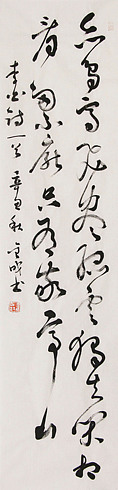 众鸟高飞尽孤云独去闲相
看两不厌只有敬亭山
李白诗一首 秋 书